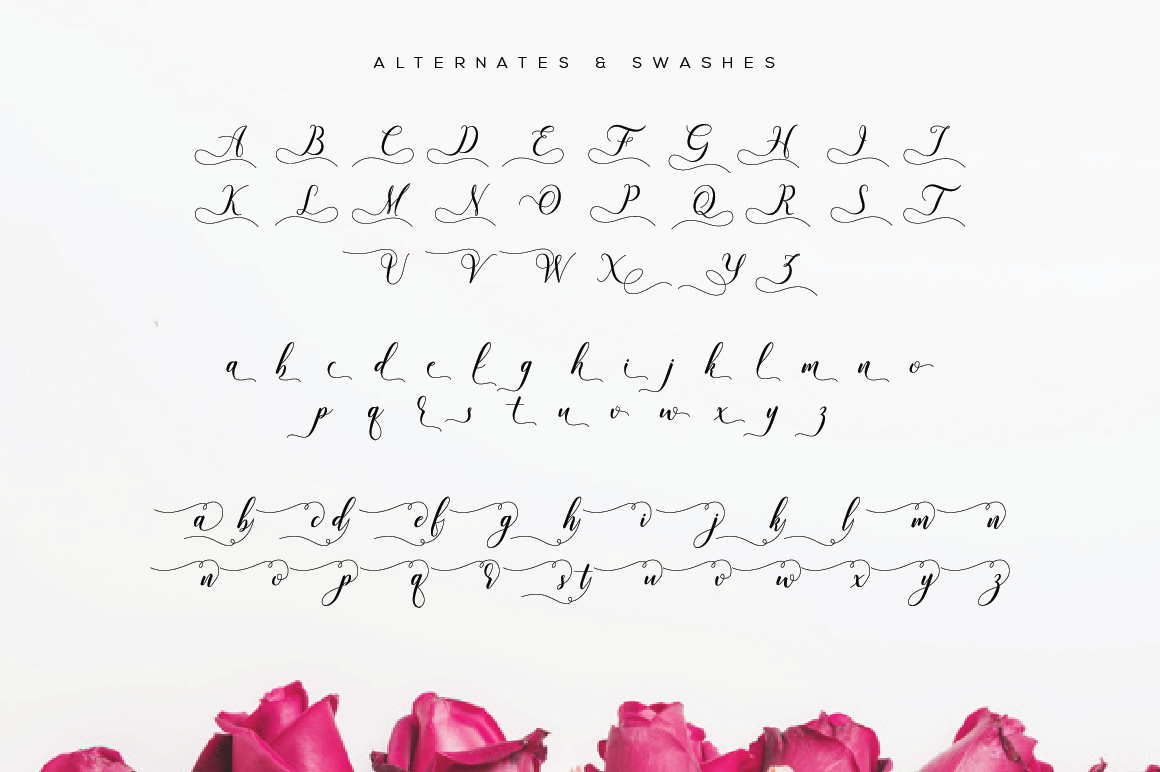 ALTERNATES & SWASHES
A B C D E F G H I J
K L M N O P Q R S T
U V W X Y Z
a b c d e f g h i j k l m n o
p q r s t u v w x y z
a b c d e f g h i j k l m n
n o p q r s t u v w x y z